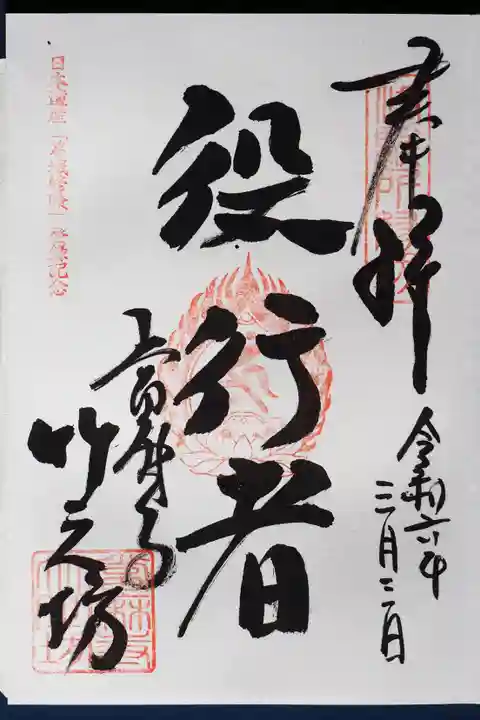 奉拝
令和六年
三月二日
役行者
竹之坊
日本遺産「葛城修験」登録記念